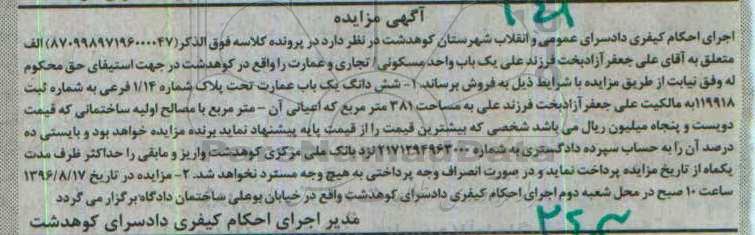 آگهی مزایده
اجرای احکام کیفری دادسرای عمومی و انقلاب شهرستان کوهدشت در نظر دارد در پرونده کلاسه فوق الذکر (۸۷۰۹۹۸۹۷۱۹۶۰۰۰۰۴۷) الف
متعلق به آقای علی جعفر آزادبخت فرزند علی یک باب واحد مسکونی / تجاری و عمارت را واقع در کوهدشت در جهت استیفای حق محکوم
له وفق نیابت از طریق مزایده با شرایط ذیل به فروش برساند. ۱- شش دانگ یک باب عمارت تحت پلاک شماره ۱/۱۴ فرعی به شماره ثبت
۱۱۹۹۱۸به مالکیت علی جعفر آزادبخت فرزند علی به مساحت ۳۸۱ متر مربع که اعیانی آن - متر مربع با مصالح اولیه ساختمانی که قیمت
دویست و پنجاه میلیون ریال می باشد شخصی که بیشترین قیمت را از قیمت پایه پیشنهاد نماید برنده مزایده خواهد بود و بایستی ده
درصد آن را به حساب سپرده دادگستری به شماره ۲۱۷۱۲۹۴۹۶۳۰۰۰ نزد بانک ملی مرکزی کوهدشت واریز و مابقی را حداکثر ظرف مدت
یکماه از تاریخ مزایده پرداخت نماید و در صورت انصراف وجه پرداختی به هیچ وجه مسترد نخواهد شد. ۲- مزایده در تاریخ ۱۳۹۶/۸/۱۷
ساعت ۱۰ صبح در محل شعبه دوم اجرای احکام کیفری دادسرای کوهدشت واقع در خیابان بوعلی ساختمان دادگاه برگزار می گردد
مدیر اجرای احکام کیفری دادسرای کوهدشت